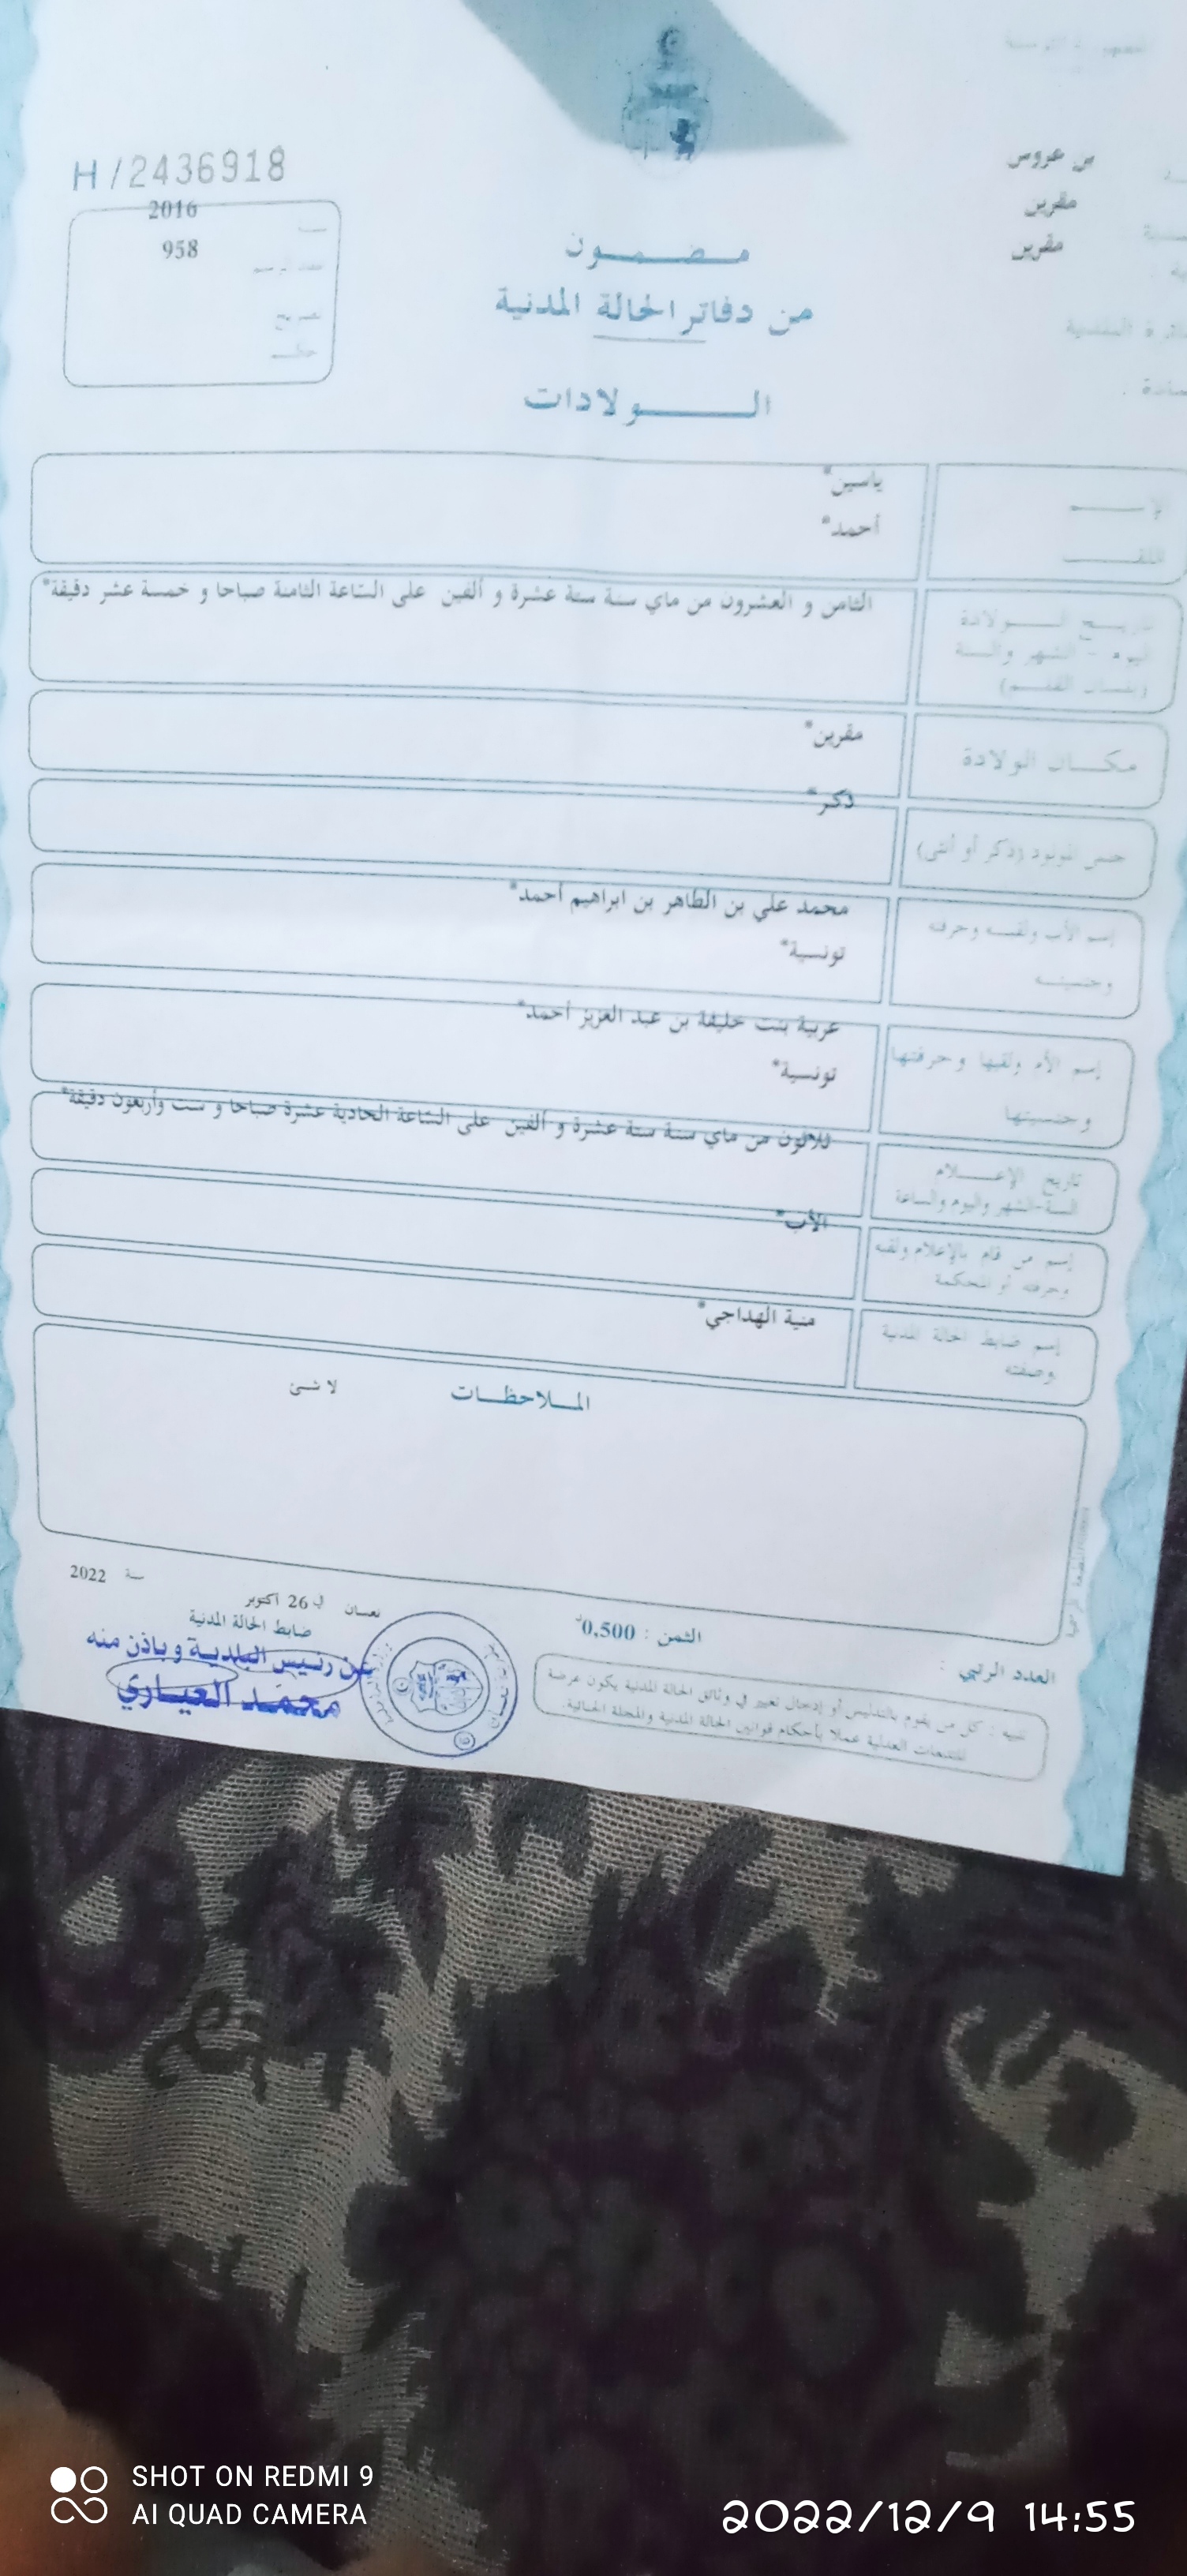 H/2436918
2016
958
بن عروس
مقرين
مقرين
مضمون
من دفاتر الحالة المدنية
الولادات
الإسم
ياسين*
اللقب
أحمد*
تاريخ الولادة
اليوم - الشهر والسنة
(بلسان القلم)
الثامن و العشرون من ماي سنة ستة عشرة و ألفين على الساعة الثامنة صباحا و خمسة عشر دقيقة*
مكان الولادة
مقرين*
جنس المولود (ذكر أو أنثى)
ذكر*
إسم الأب ولقبه وحرفته
وجنسيته
محمد علي بن الطاهر بن ابراهيم أحمد*
تونسية*
إسم الأم ولقبها وحرفتها
وجنسيتها
عربية بنت خليفة بن عبد العزيز أحمد*
تونسية*
تاريخ الإعلام
السنة-الشهر واليوم والساعة
ثلاثون من ماي سنة ستة عشرة و ألفين على الساعة الحادية عشرة صباحا و ست وأربعون دقيقة*
إسم من قام بالإعلام ولقبه
وحرفته أو المحكمة
الأب*
إسم ضابط الحالة المدنية
وصفته
منية الهداجي*
الملاحظات
لا شئ
نعسان في 26 أكتوبر سنة 2022
ضابط الحالة المدنية
عن رئيس البلدية وباذن منه
محمد العياري
الثمن : 0,500د
العدد الرتبي :
تنبيه : كل من يقوم بالتدليس أو إدخال تغيير في وثائق الحالة المدنية يكون عرضة
للتتبعات العدلية عملا بأحكام قوانين الحالة المدنية والمجلة الجنائية.
SHOT ON REDMI 9
AI QUAD CAMERA
2022/12/9 14:55